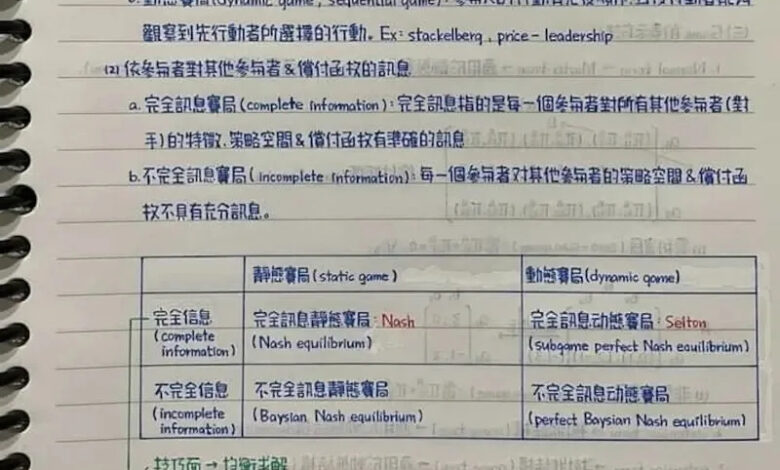 觀察到先行動者所選擇的行動。Ex: stackelberg, price-leadership
(2) 依參與者對其他參與者&償付函數的訊息
a. 完全訊息賽局(complete information): 完全訊息指的是每一個參與者對所有其他參與者(對
手)的特徵、策略空間&償付函數有準確的訊息
b. 不完全訊息賽局(incomplete information): 每一個參與者对其他參與者的策略空間&償付函
數不具有充分訊息。
靜態賽局(static game) 動態賽局(dynamic game)
完全信息 完全訊息靜態賽局: Nash 完全訊息动態賽局: Selton
(complete (Nash equilibrium) (subgame perfect Nash equilibrium)
information)
不完全信息 不完全訊息靜態賽局 不完全訊息动態賽局
(incomplete (Baysian Nash equilibrium) (perfect Baysian Nash equilibrium)
information)
技巧面→均衡求解